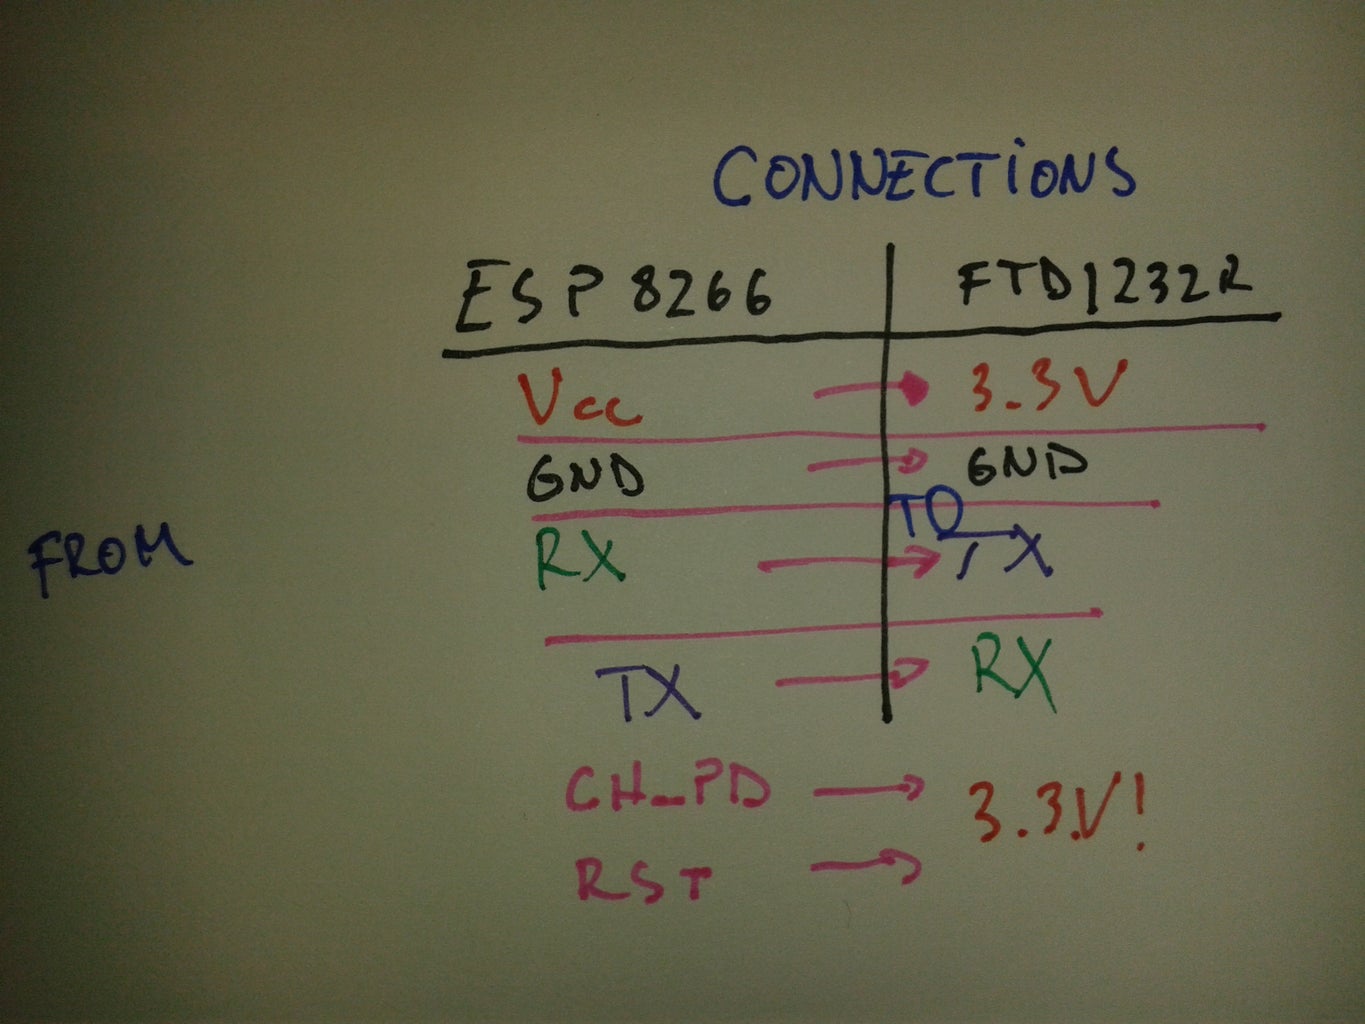 CONNECTIONS
ESP8266 FTD1232R
Vcc → 3.3V
GND → GND
TO
FROM RX → TX
TX → RX
CH_PD → 3.3V!
RST →